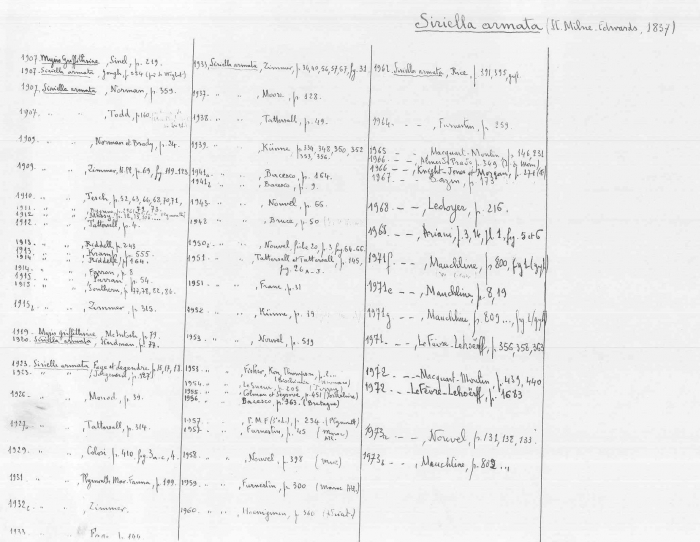 Siriella armata (H. Milne-Edwards, 1837)
1907. Mysis Griffithsiae, Sinel, p. 219.
1907. Siriella armata, Gough, p.
1907. Siriella armata, Norman, p. 359.
1907. " " , Todd, p.
1909. " " , Norman et Brady, p. 24.
1909. " " , Zimmer, p. 69, fig 119-123
1910. " " , Tesch, p. 52, 63, 64, 68, 70, 71,
1912. " " , Tattersall, p. 4.
1913. " " , Riddell, p. 243
1913. " " , Kramp, p. 555.
1914. " " , Riddell, p. 164.
1914. " " , Farran, p. 8
1915. " " , p. 54.
1915. " " , Southern, p. 44, 78, 82, 86.
1915. " " , Zimmer, p. 315.
1919. Mysis Griffithsiae, McIntosh, p. 79.
1920. Siriella armata, Kindman, p. 77.
1923. Siriella armata, Fage et Legendre, p. 15, 17, 18.
1923. " " , p. 127
1926. " " , Monod, p. 39.
1927. " " , Tattersall, p. 314.
1929. " " , Colosi, p. 410, fig 3a-c, 4.
1931. " " , Plymouth Mar. Fauna, p. 199.
1932 " " , Zimmer.
1933. " "
1933. Siriella armata, Zimmer, p. 36, 40, 56, 57, 67, fig. 31
1937. " " , Moore, p. 128.
1938. " " , Tattersall, p. 49.
1939. " " , Künne, p. 334, 348, 350, 352, 353, 356.
1941a " " , Bacesco, p. 164.
1941b " " , Bacesco, p. 9.
1943. " " , Nouvel, p. 66.
1948 " " , Bruce, p. 50
1950 " " , Nouvel, fiche 20, p. 3, fig 64-66
1951. " " , Tattersall et Tattersall, p. 145, fig. 26 a-j.
1951 " " , Franc, p. 31
1952. " " , Künne, p. 19
1953. " " , Nouvel, p. 519
1953 " " , Fischer, Ker, Thompson, p.
1954. " " , Le Sueur, p. 208 (Jersey)
1955. " " , Colman et Segrove, p. 451
1956. " " , Bacesco, p. 363. (Bretagne)
1957. " " , P.M.F. p. 294 (Plymouth)
1957. " " , Furnestin, p. 45 (Maroc Atl.)
1958. " " , Nouvel, p. 398
1959. " " , Furnestin, p. 300 (Maroc Atl.)
1960. " " , Hoenigman, p. 360
1961. Siriella armata, Rice, p. 191, 195,
1964. - - , Furnestin, p. 259.
1965 - - , Macquart-Moulin, p. 146, 231
1966 - - , Almeida Prado, p. 349
1966 - - , Knight-Jones et Morgan, p. 271
1967. - - , p. 173
1968. - - , Ledoyer, p. 216.
1968. - - , Ariani, p. 3, 14, pl. 1, fig 5 et 6
1971f. - - , Mauchline, p. 800, fig 1
1971e - - , Mauchline, p. 8, 19
1971g - - , Mauchline, p. 209..., fig
1971. - - , Le Fèvre-Lehoërff, p. 356, 358, 363
1972 - - , Macquart-Moulin, p. 439, 440
1972 - - , Le Fèvre-Lehoërff, p. 1683
1973a - - , Nouvel, p. 131, 132, 133.
1973b - - , Mauchline, p. 802 ..,